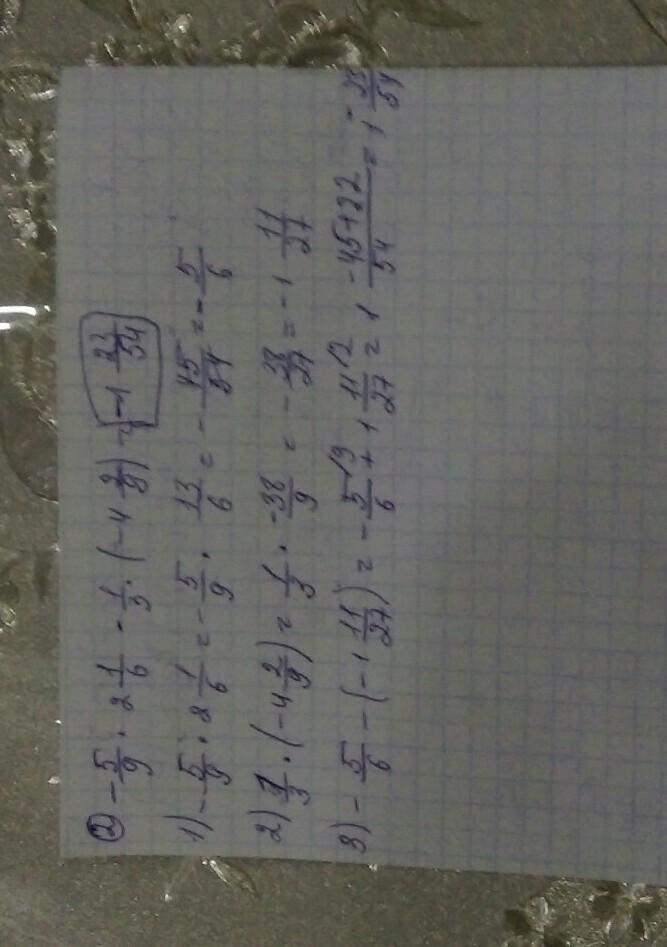 ② -5/9 · 2 1/6 - 1/3 · (-4 2/9) = -1 23/54
1) -5/9 · 2 1/6 = -5/9 · 13/6 = -45/54 = -5/6
2) 1/3 · (-4 2/9) = 1/3 · -38/9 = -38/27 = -1 11/27
3) -5/6 - (-1 11/27) = -5/6 /9 + 1 11/27 /2 = 1 -45+22/54 = 1 -23/54